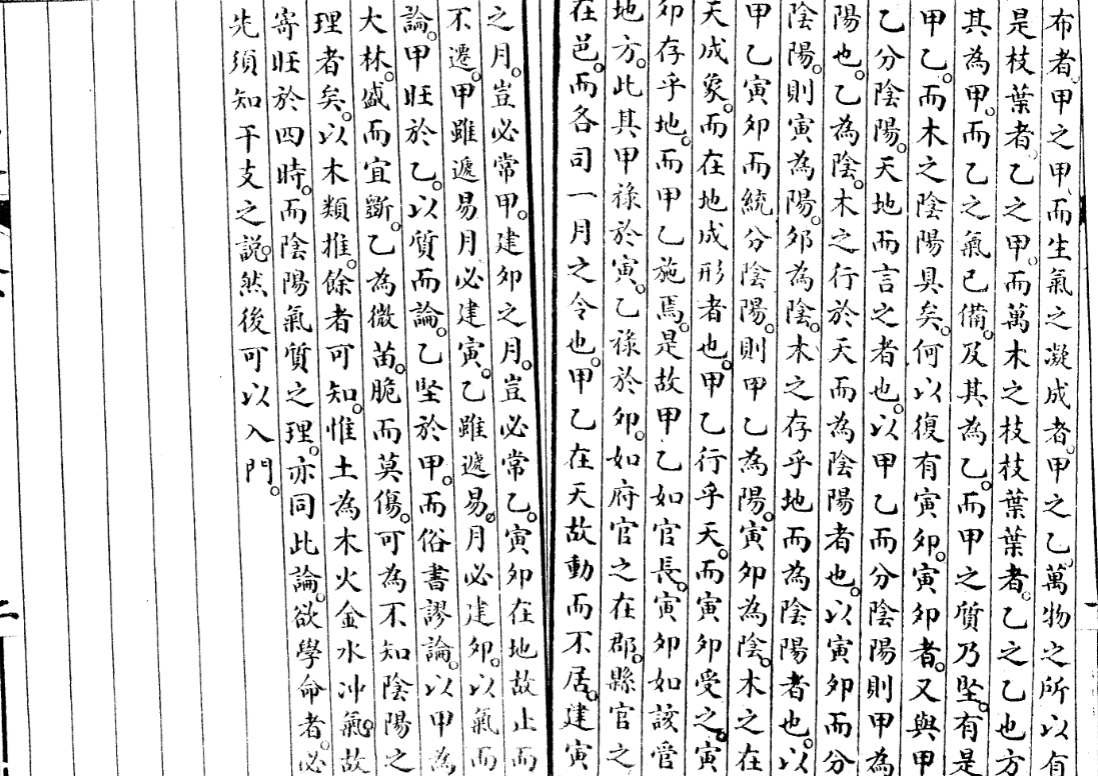 布者。甲之甲、而生氣之凝成者。甲之乙。萬物之所以有
是枝葉者。乙之甲。而萬木之枝枝葉葉者。乙之乙也。方
其為甲。而乙之氣已備。及其為乙。而甲之質乃堅。有是
甲乙。而木之陰陽具矣。何以復有寅卯。寅卯者。又與甲
乙分陰陽。天地而言之者也。以甲乙而分陰陽則甲為
陽也。乙為陰。木之行於天而為陰陽者也。以寅卯而分
陰陽。則寅為陽。卯為陰。木之存乎地而為陰陽者也。以
甲乙寅卯而統分陰陽。則甲乙為陽。寅卯為陰。木之在
天成象。而在地成形者也。甲乙行乎天。而寅卯受之。寅
卯存乎地。而甲乙施焉。是故甲乙如官長。寅卯如該管
地方。此其甲祿於寅。乙祿於卯。如府官之在郡。縣官之
在邑。而各司一月之令也。甲乙在天故動而不居。建寅
之月。豈必常甲。建卯之月。豈必常乙。寅卯在地故止而
不遷。甲雖遞易月必建寅。乙雖遞易。月必建卯。以氣而
論。甲旺於乙。以質而論。乙堅於甲。而俗書謬論。以甲為
大林。盛而宜斵。乙為微苗。脆而莫傷。可為不知陰陽之
理者矣。以木類推。餘者可知。惟土為木火金水冲氣。故
寄旺於四時。而陰陽氣質之理。亦同此論。欲學命者。必
先須知干支之説。然後可以入門。
二